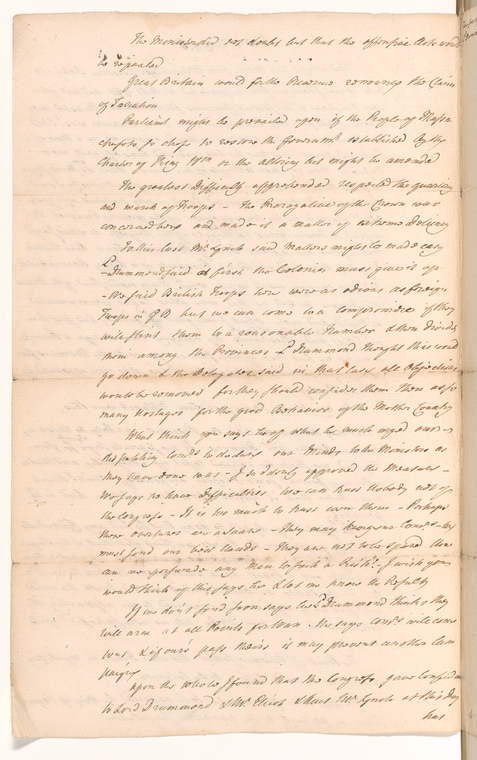 The Ministry did not doubt but that the offensive Acts would
be repealed
Great Britain would for the Presence renounce the Claim
of Taxation
Parliamt might be prevailed upon if the People of Massa
chusets so chose to restore the Governmt established by the
Charter of King Wm or the altering Act might be amended
The greatest Difficulty apprehended respected the quartering
and march of Troops – the Prerogative of the Crown was
concerned here and made it a matter of extreme Delicacy
To this last Mr Lynch said matters might be made easy
Ld Drummond said at first the Colonies must give it up
– We said British Troops here were as odious as foreign
Troops in GB but we can come to a compromise if they
will stint them to a reasonable Number & then divide
them among the Provinces Ld Drummond thought this would
go down & the Delegates said in that case all Objections
would be removed for they should consider them then as so
many Hostages for the good Behavior of the Mother Country
What think you says he of what he much urged over
dispatching Comrs to declare our Minds to the Ministers as
they have done to us – I suddenly approved the Measure –
We says he have Difficulties We can trust Nobody not of
the Congress – It is too much to trust even them – Perhaps
these overtures are a snare – they may
must send our best Hands – They are not to be spared How
can we persuade any Man to such a Risk? – I wish you
would think of this says he & let me know the Result
If we don't send soon says he Ld Drummond thinks they
will arm at all Points for War. He says Comrs will come
to us & if ours pass theirs it may prevent another Cam
paign
Upon the Whole I found that the Congress gave Confidence
to Lord Drummond & Mr Eliot & that Mr Lynch at this Day
has